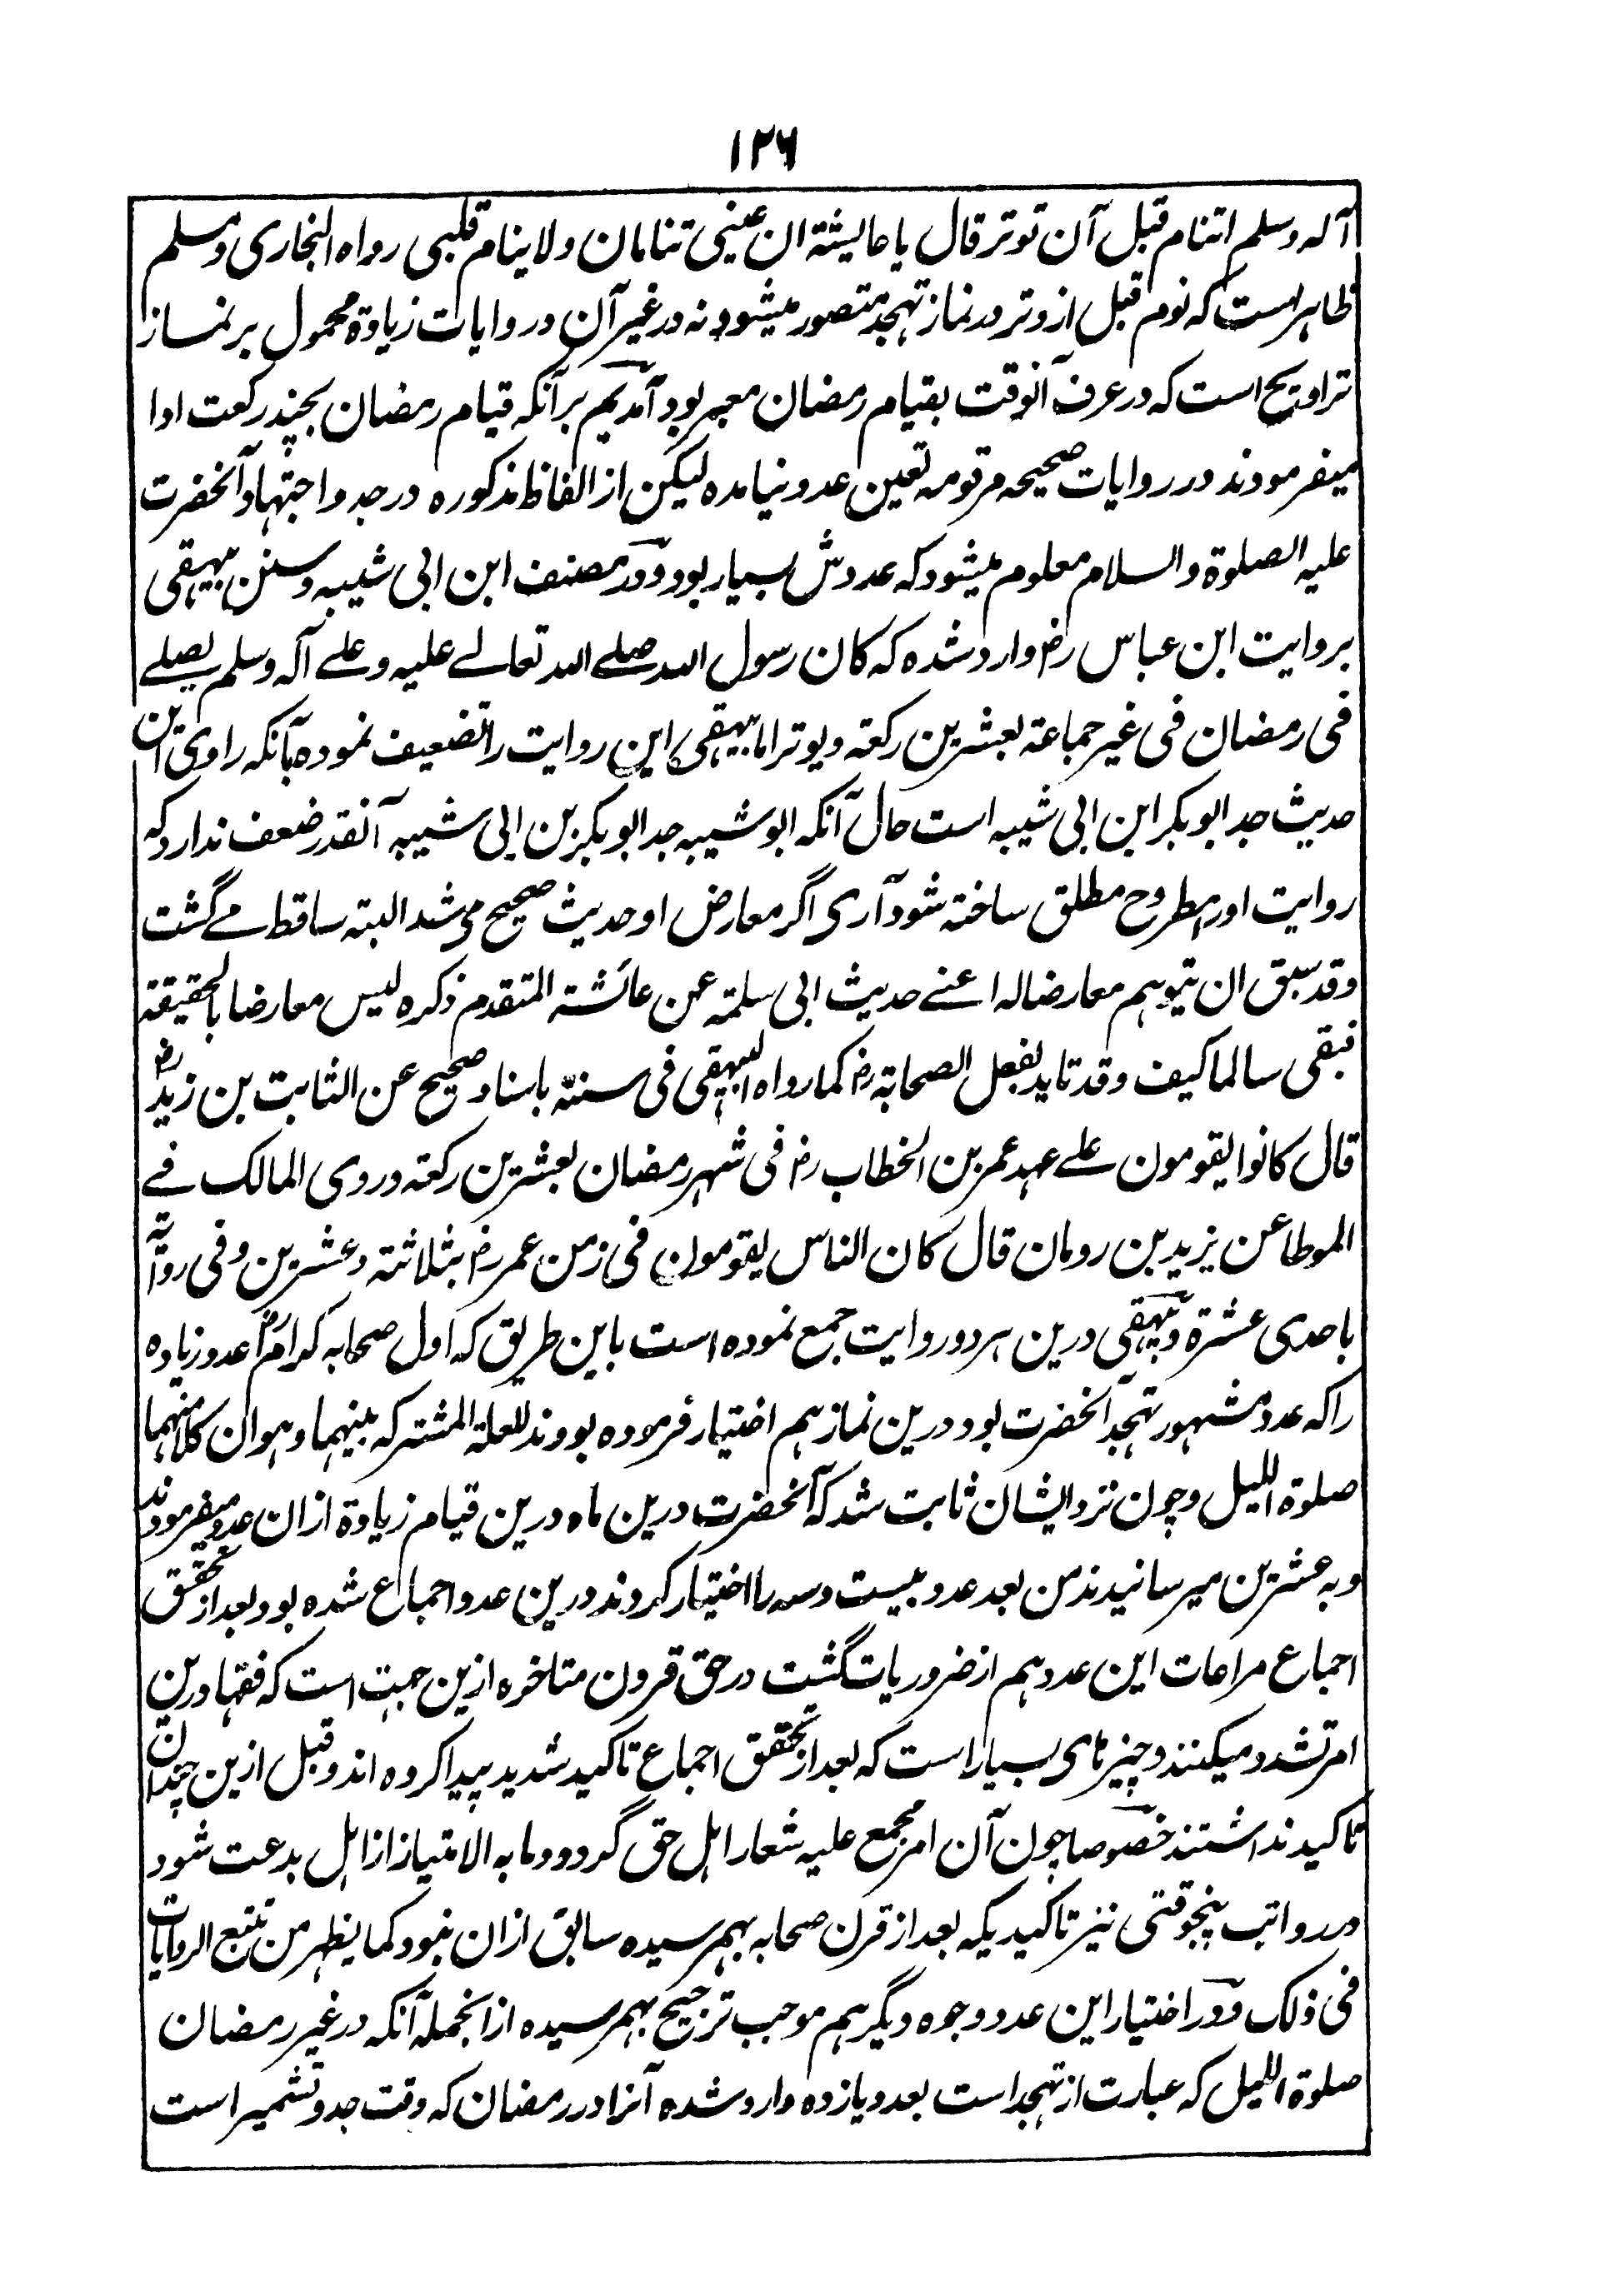 ۱۲۶
آله وسلم اتنام قبل آن توتر قال یا عایشة ان عینی تنامان ولا ینام قلبی رواه البخاری ومسلم
ظاهر است که نوم قبل از وتر در نماز تهجد متصور میشود نه در غیر آن و روایات زیادة محمول بر نماز
تراویح است که در عرف آنوقت بقیام رمضان معبر بود آمدیم بر آنکه قیام رمضان بچند رکعت ادا
میفرمودند در روایات صحیحه مرقومه تعین عدد نیامده لیکن از الفاظ مذکوره در جد و اجتهاد آنحضرت
علیه الصلوة والسلام معلوم میشود که عددش بسیار بود و در مصنف ابن ابی شیبه و سنن بیهقی
بروایت ابن عباس رض وارد شده که کان رسول الله صلے الله تعالے علیه وعلے آله وسلم یصلے
فی رمضان فی غیر جماعة بعشرین رکعة و یوتر اما بیهقی این روایت را تضعیف نموده بآنکه راوی این
حدیث جد ابوبکر ابن ابی شیبه است حال آنکه ابو شیبه جد ابوبکر بن ابی شیبه آنقدر ضعف ندارد که
روایت او را مطروح مطلق ساخته شود آری اگر معارض او حدیث صحیح می شد البته ساقط مے گشت
وقد سبق ان یتوهم معارضا له اعنے حدیث ابی سلمة عن عائشة المتقدم ذکره لیس معارضا بالحقیقة
فبقی سالما کیف وقد تاید بفعل الصحابة رض کما رواه البیهقی فی سننه باسناد صحیح عن الثابت بن زید رض
قال کانوا یقومون علے عهد عمر بن الخطاب رض فی شهر رمضان بعشرین رکعة وروی المالک فے
الموطا عن یزید بن رومان قال کان الناس یقومون فی زمن عمر رض بثلاثة وعشرین وفی روایة
باحدی عشرة و بیهقی درین هر دو روایت جمع نموده است باین طریق که اول صحابه کرام رض عدد زیاده
را که عدد مشهور تهجد آنحضرت بود درین نماز هم اختیار فرموده بودند للعلة المشترکه بینهما وهو ان کلا منهما
صلوة اللیل و چون نزد ایشان ثابت شد که آنحضرت درین ماه درین قیام زیادة ازان عدد میفرمودند
و به عشرین میرسانیدند من بعد عدد بیست و سه را اختیار کردند و درین عدد اجماع شده بود بعد از تحقق
اجماع مراعات این عدد هم از ضروریات گشت در حق قرون متاخره ازین جهت است که فقها درین
امر تشدد میکنند و چیزهای بسیار است که بعد از تحقق اجماع تاکید شدید پیدا کرده اند و قبل ازین چندان
تاکید نداشتند خصوصا چون آن امر مجمع علیه شعار اهل حق گردد و ما به الامتیاز از اهل بدعت شود
در رواتب پنجوقتی نیز تاکیدیکه بعد از قرن صحابه بهم رسیده سابق ازان نبود کما یظهر من تتبع الروایات
فی ذلک و در اختیار این عدد وجوه دیگر هم موجب ترجیح بهم رسیده ازانجمله آنکه در غیر رمضان
صلوة اللیل که عبارت از تهجد است بعدد یازده وارد شده آنرا در رمضان که وقت جد و تشمیر است